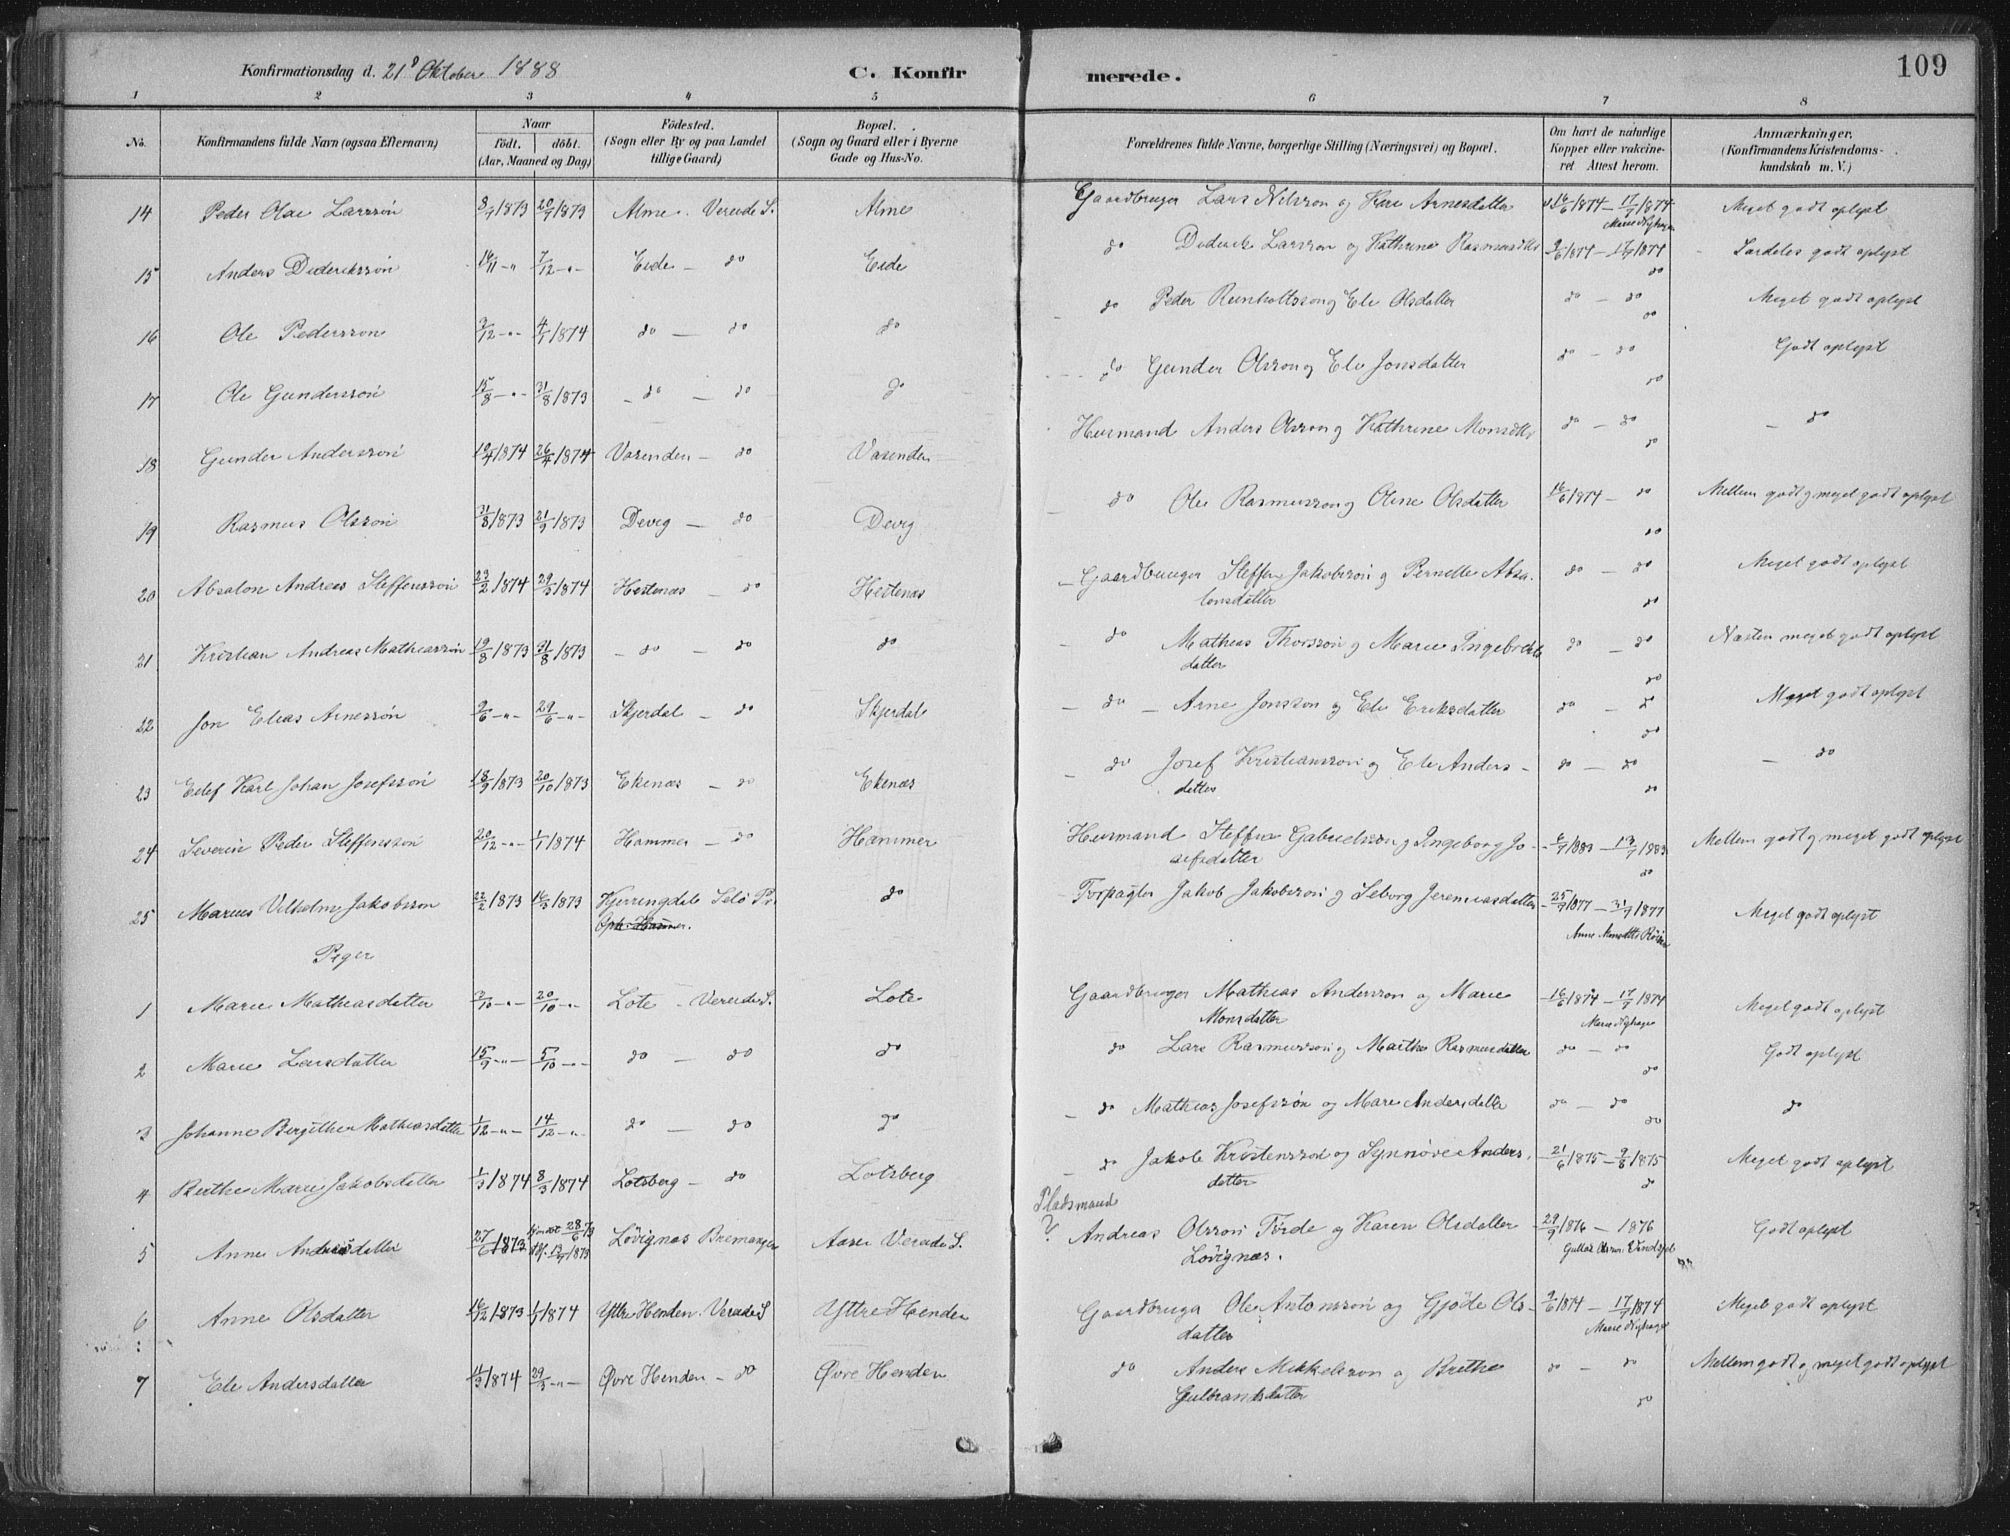 Konfirmationsdag d. 21 Oktober 1888 C. Konfirmerede. 109
1 2 3 4 5 6 7 8
No. Konfirmandens fulde Navn (ogsaa Efternavn) Naar födt. döbt. (Aar, Maaned og Dag) Födested. (Sogn eller By og paa Landet tillige Gaard) Bopæl. (Sogn og Gaard eller i Byerne Gade og Hus-No. Forældrenes fulde Navne, borgerlige Stilling (Næringsvei) og Bopæl. Om havt de naturlige Kopper eller vakcineret Attest herom. Anmærkninger. (Konfirmandens Kristendomskundskab m. V.)
14 Peder Olai Larssön 8/7 1873 20/7 1873 Alme Vereide S. Alme Gaardbruger Lars Nilsson og Kari Arnesdatter 16/6 1874 – 17/7 1874 Meget godt oplyst
15 Anders Dideriksson 16/11 -"- 7/12 -"- Eide – do Eide do Diderik Larsson og Kathrine Rasmusdtr 9/6 1874 – 17/7 1874 do Særdeles godt oplyst
16 Ole Pedersson 3/12 -"- 4/1 1874 do – do do do Peder Reinholtsson og Ele Olsdatter do – do do Meget godt oplyst
17 Ole Gunderssön 15/8 -"- 31/8 1873 do – do do do Gunder Olsson og Ele Jonsdatter do – do do Godt oplyst
18 Gunder Anderssön 10/4 1874 26/4 1874 Vasenden – do Vasenden Husmand Anders Olsson og Kathrine Monsdtr do – do do – do
19 Rasmus Olsson 31/8 1873 21/9 1873 Devig – do Devig do Ole Rasmusson og Oline Olsdatter 16/6 1874 – do do Mellem godt og meget godt oplyst
20 Absalon Andreas Steffenssön 23/2 1874 29/3 1874 Hestenæs – do Hestenæs Gaardbruger Steffen Jakobsson og Pernelle Absalonsdatter do – do do Meget godt oplyst
21 Kristian Andreas Mathiassön 19/8 1873 31/8 1873 do – do do do Mathias Thorsson og Marie Ingebrektsdatter do – do do Næsten meget godt oplyst
22 Jon Elias Arnessön 9/6 -"- 29/6 -"- Skjerdal – do Skjerdal do – Arne Jonsson og Ele Eriksdatter do – do do Meget godt oplyst
23 Eilef Karl Johan Josefssön 18/9 1873 20/10 1873 Ekenæs – do Ekenæs do Josef Kristiansson og Ele Andersdatter do – do do – do
24 Severin Peder Steffensson 20/12 -"- 1/1 1874 Hammer – do Hammer Husmand Steffen Gabrielsson og Ingeborg Josefsdatter 6/7 1883 – 13/7 1883 do Mellem godt og meget godt oplyst
25 Marius Vilhelm Jakobsson 22/2 1873 16/3 1873 Hjerringdale Selö P. do Forpagter Jakob Jakobsson og Seborg Jeremiasdatter 25/7 1877 – 31/7 1877 Meget godt oplyst
Piger
1 Marie Mathiasdatter 3/10 -"- 20/10 -"- Lote – Vereide S. Lote Gaardbruger Mathias Andersson og Marie Monsdatter 16/6 1874 – 17/7 1874 Meget godt oplyst
2 Marie Larsdatter 15/9 -"- 5/10 -"- do – do do do Lars Rasmusson og Marthe Rasmusdatter do – do do Godt oplyst
3 Johanne Bergithe Mathiasdatter 1/12 -"- 14/12 -"- do – do do do Mathias Josefssön og Marie Andersdatter do – do do do
4 Brithe Marie Jakobsdatter 1/3 1874 8/3 1874 Lotsberg – do Lotsberg do Jakob Kristensson og Synnöve Andersdatter 21/6 1875 – 9/8 1875 do Meget godt oplyst
5 Anne Andreasdatter 27/6 1873 28/6 73 13/7 1873 Lövignæs Bremanger Aasen Vereide S. Pladsmand ? Andreas Olsson Förde og Karen Olsdatter Lövignæs. 29/9 1876 – 1876 Godt oplyst
6 Anne Olsdatter 16/12 1873 1/1 1874 Yttre Henden Vereide S Yttre Henden Gaardbruger Ole Antonssön og Gjöde Olsdatter 9/6 1874 – 17/7 1874 Meget godt oplyst
7 Ele Andersdatter 11/3 1874 29/3 -"- Øvre Henden – do Øvre Henden do Anders Mikkelsson og Brithe Gulbrandsdatter do – do do Mellem godt og meget godt oplyst